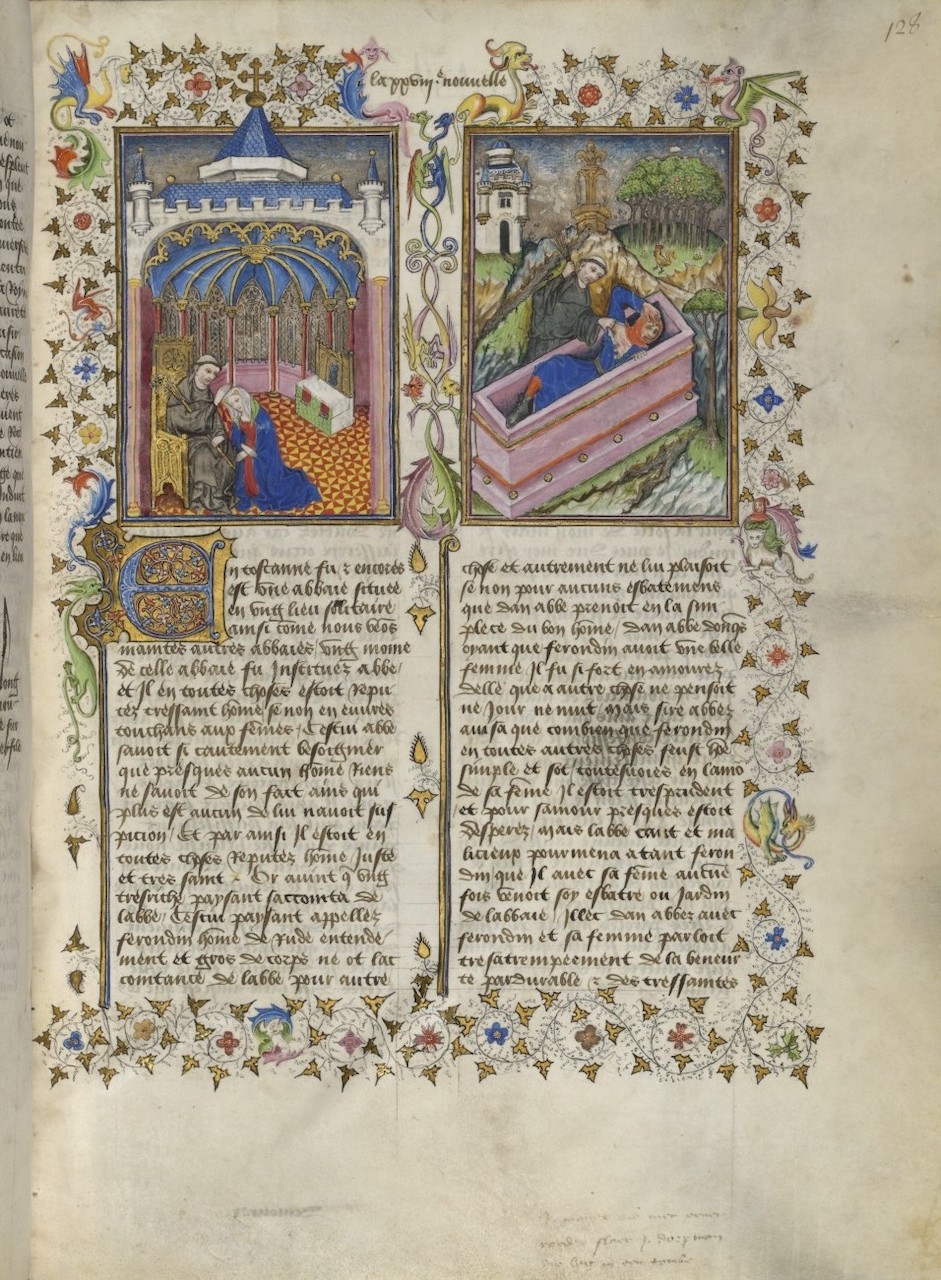 128
la xxviii.e nouvelle
En toscanne fu ⁊ encores
est une abbaie situee
en ung lieu solitaire
ainsi come nous veos
maintes autres abbaies / ung moine
de celle abbaie fu Instituez abbe /
et Il en toutes choses estoit Repu
tez tressaint home se non en euvres
touchans aux femes / Cestui abbe
savoit si cautement besoigner
que presques aucun home Riens
ne savoit de son fait ains qui
plus est aucun de lui navoit sus
picion / Et par ainsi Il estoit en
toutes choses Reputez home Juste
et tres saint / Or avint q ung
tresriche paysant saccointa de
labbe / Cestui paysant appellez
ferondin home de Rude entende
ment et gros de corps ne ot lac
cointance de labbe pour autre
chose et autrement ne lui plaisoit
se non pour aucuns esbatemens
que dan abbe prenoit en la sim
plece du bon home / dan abbe donqs
oyant que ferondin avoit une belle
femme Il fu si fort enamourez
delle que a autre chose ne pensoit
ne Jour ne nuit / mais sire abbez
avisa que combien que ferondin
en toutes autres choses feust hoe
simple et sot / toutesvoies en lamo
de sa feme Il estoit tresprudent
et pour samour presques estoit
desperez / mais labbe caut et ma
licieux pourmena a tant feron
din que Il avec sa feme aucune
fois venoit soy esbatre ou Jardin
de labbaie / Illec dan abbez avec
ferondin et sa femme parloit
tresatrempeement de la beneur
te pardurable ⁊ des tressaintes